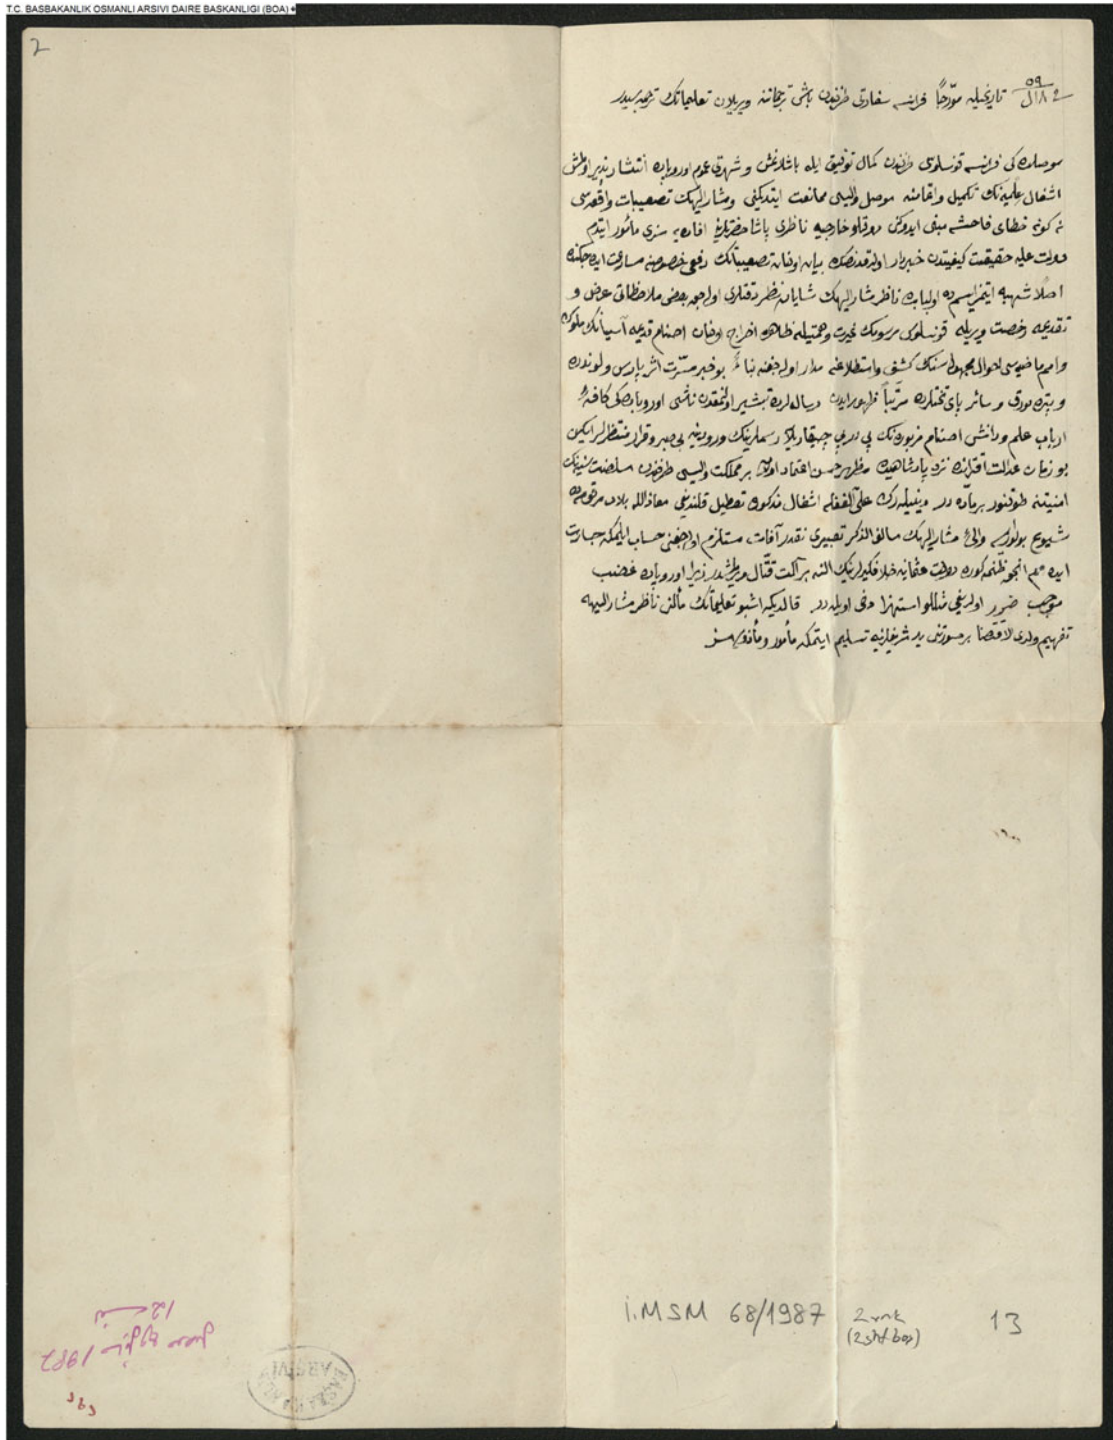 T.C. BASBAKANLIK OSMANLI ARSIVI DAIRE BASKANLIGI (BOA)
2
٥٩
تاريخيله مؤرخاً فرانسه سفارتى طرفندن باش ترجماننه ويريلان تعليماتك ترجمه سيدر
موصلده كى فرانسه قونسلوسى طرفندن كمال توفيق ايله باشلانمش و شهرتى عموم اوروپاده انتشار پذير اولمش
اشغال علميه نك تكميل و اتمامنه موصل واليسى ممانعت ايتديكنى و مشار اليهك تعصيبات واقعه سى
نه كونه خطاى فاحشه مبنى ايدوكنى خارجيه ناظرى پاشا حضرتلرينه افاده يه سزى مأمور ايتدم
دولت عليه حقيقت كيفيتدن خبردار اولدقدنصكره بيان اولنان تعصيباتك دفعى خصوصنه مسارعت ايده جكنده
اصلا شبهه ايتمز ايسم ده اولبابده ناظر مشار اليهك شايان نظر دقتلرى اوله جق بعض ملاحظاتى عرض و
تقديمه رخصت ويريله قونسلوس مرسومك غيرت و همتيله ظاهره اخراج اولنان اصنام قديمه آسيانك ملوك
و امم ماضيه سى احوال مجهوله سنك كشف و استطلاعنه مدار اوله جغنه بناءً بو خبر مسرت اثر پارس و لوندره
و سائر پاى تختلرده مرتباً ظهور ايدن رساله لرده تبشير اولنمقدن ناشى اوروپاده كى كافهٔ
ارباب علم و دانش اصنام مزبوره نك پى درپى چيقاريلان رسملرينك ورودينه بى صبر و قرار منتظرلر ايكن
بو زمان عدالت اقترانده نزد پادشاهيده مظهر حسن اعتماد اولان بر مملكت واليسى طرفندن سلطنت سنيه نك
امنيتنه طوقنور بر ماده در دينيله رك على الغفله اشغال مذكوره تعطيل قلنديغى معاذ الله بلاد مرقومه ده
شيوع بولورسه والئ مشار اليهك سالف الذكر تعبيرى نقدر آفات مستلزم اوله جغنى حساب ايلمكه جسارت
ايده مم انجق ظنمه كوره دولت عثمانيه خلافكيرلرينك النه بر آلت قتال ويرلمشدر زيرا اوروپاده غضب
موجب ضرر اولديغى مثللو استهزا دخى اويله در قالديكه اشبو تعليماتك مآلنى ناظر مشار اليهه
تفهيم ولدى الاقتضا بر صورتنى يد شريفلرينه تسليم ايتمكه مأمور و مأذونسز
İ.MSM 68/1987
2 vrk
13
1987